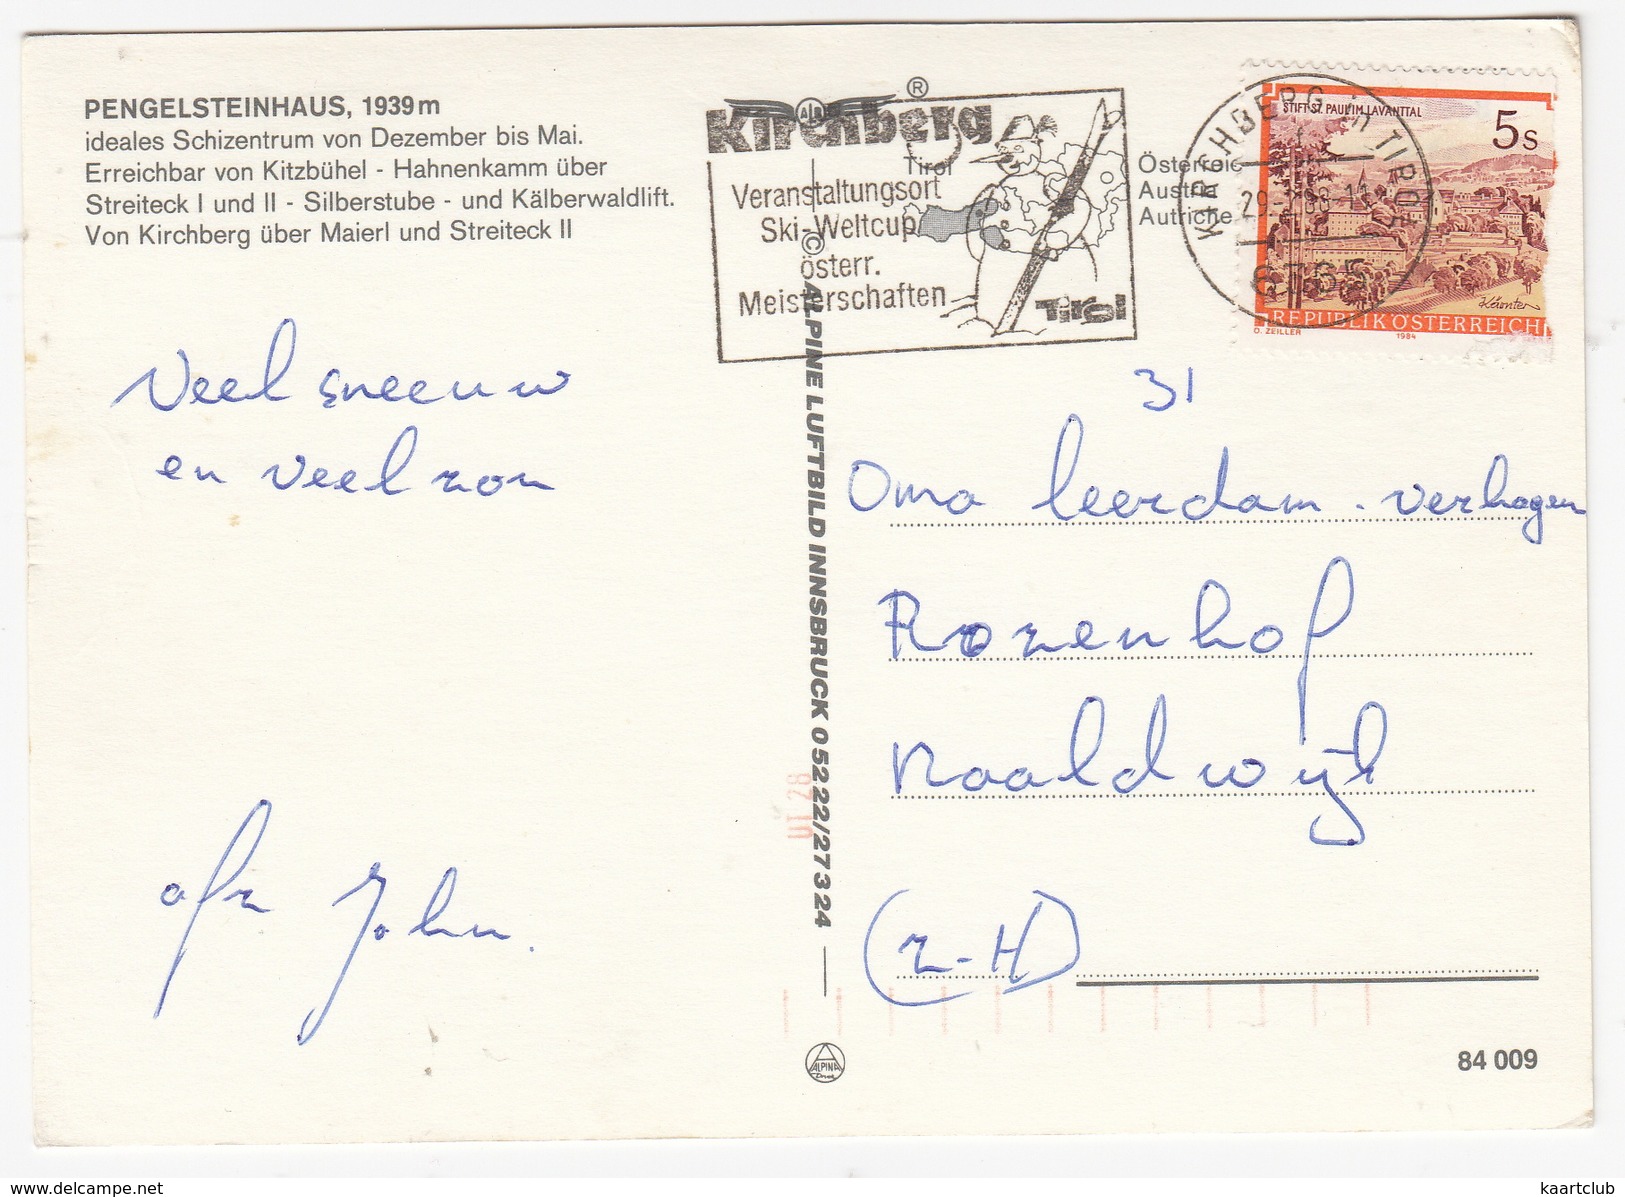 PENGELSTEINHAUS, 1939m
ideales Schizentrum von Dezember bis Mai.
Erreichbar von Kitzbühel - Hahnenkamm über
Streiteck I und II - Silberstube - und Kälberwaldlift.
Von Kirchberg über Maierl und Streiteck II
Veel sneeuw
en veel zon
afz John.
Kirchberg ®
Tirol
Veranstaltungsort
Ski-Weltcup
österr.
Meisterschaften
Tirol
Österreic
Austri
Autriche
KIRCHBERG in TIROL
6365
STIFT ST. PAUL IM LAVANTTAL
5s
Kärnten
REPUBLIK ÖSTERREICH
O. ZEILLER 1984
© ALPINE LUFTBILD INNSBRUCK 0 52 22/27 3 24
31
Oma leerdam - verhagen
Rozenhof
Naaldwijk
(Z-H)
ALPINA
84 009
www.delcampe.net
kaartclub